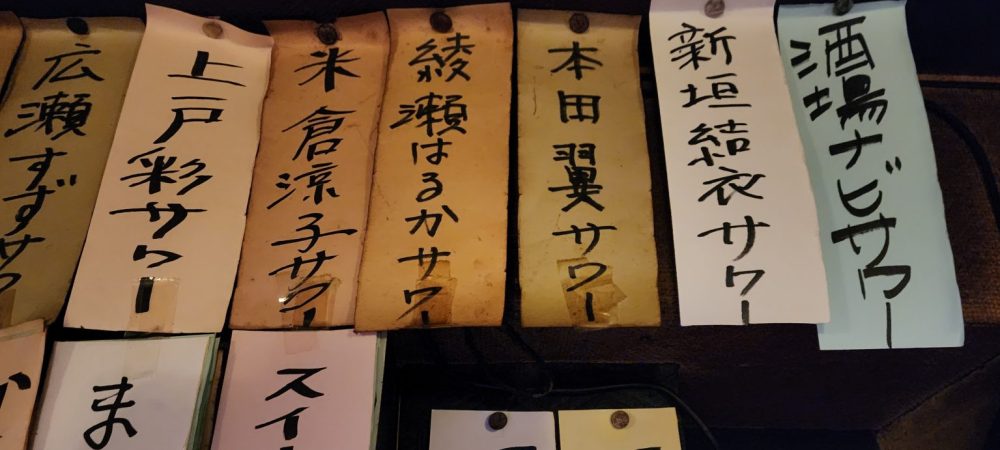 酒場ナビサワー
新垣結衣サワー
本田翼サワー
綾瀬はるかサワー
米倉涼子サワー
上戸彩サワー
広瀬すずサワ
スイ
ま